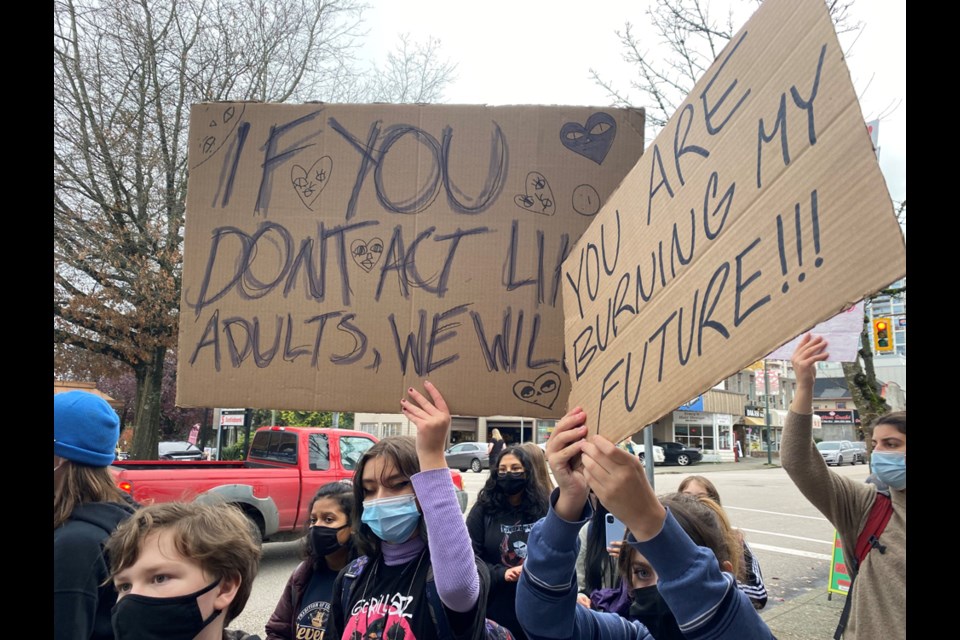 IF YOU
DONT ACT LI
ADULTS, WE WIL
YOU ARE
BURNING MY
FUTURE!!!
GORILLAZ